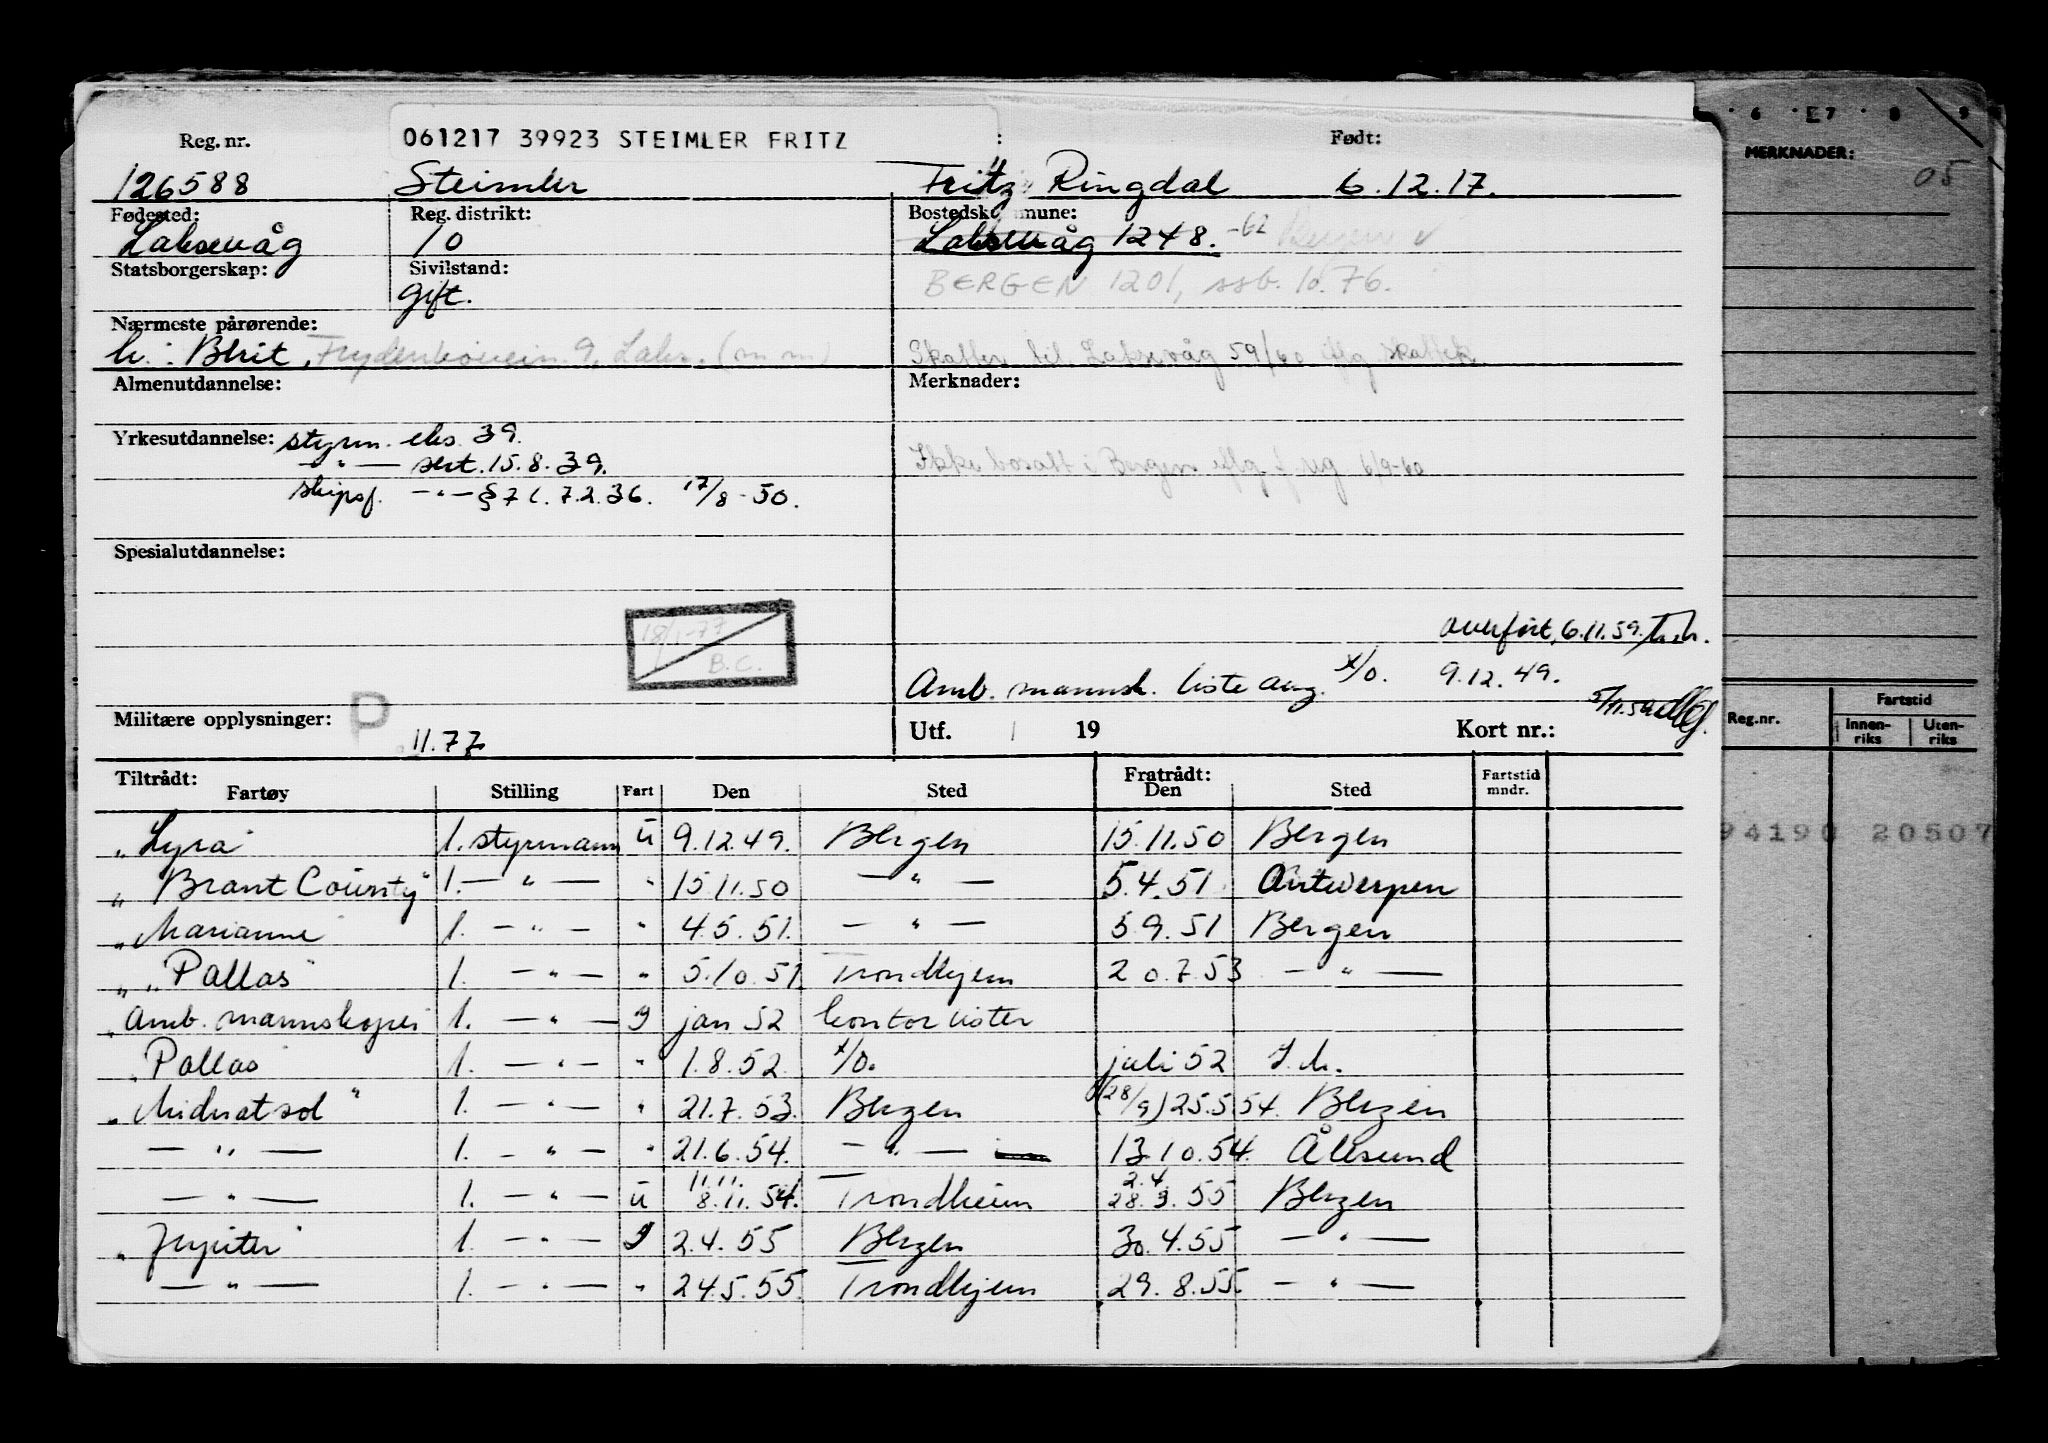 061217 39923 STEIMLER FRITZ
Reg. nr. : Født:
126588 Steimler "Fritz" Ringdal 6.12.17.
Fødested: Reg. distrikt: Bostedskommune:
Laksevåg 10 Laksevåg 1248. -62 Bergen v
Statsborgerskap: Sivilstand:
gift. BERGEN 1201, ssb. 10.76.
Nærmeste pårørende:
h.: Berit, 9, Laks. (m m) Skatter til Laksevåg 59/60 iflg skattek
Almenutdannelse: Merknader:
Yrkesutdannelse: styrm. eks. 39.
— " — sert. 15.8.39.
skipsf. — " — § 7 l. 7.2.36. 17/8-50.
Ikke bosatt i Bergen iflg f. reg 6/9-60
Spesialutdannelse:
18/1-77
B.C.
overført, 6.11.59.
Amb. mannsk. liste ang. t/o. 9.12.49.
5/11.59
Militære opplysninger: P
11.77
Utf. 19 Kort nr.:
Tiltrådt: Fratrådt:
Fartøy Stilling Fart Den Sted Den Sted Fartstid mndr.
"Lyra" 1. styrmann u 9.12.49. Bergen 15.11.50 Bergen
"Brant County" 1. — " — " 15.11.50 — " — 5.4.51 Antwerpen
"Marianne 1. — " — " 4.5.51. — " — 5.9.51 Bergen
" "Pallas" 1. — " — " 5.10.51. Trondhjem 20.7.53 — " —
Amb. mannskaper 1. — " — 9 jan 52 kontor lister
"Pallas" 1. — " — " 1.8.52 t/o. juli 52 I.h.
"Midnatsol" 1. — " — " 21.7.53. Bergen (28/9) 25.5.54. Bergen
— " — 1. — " — " 21.6.54. — " — 13.10.54. Ålesund
— " — 1. — " — u 11.11. 8.11.54. Trondheim 2.4. 28.3.55 Bergen
"Jupiter" 1. — " — 9 2.4.55 Bergen 30.4.55 — " —
— " — 1. — " — " 24.5.55. Trondhjem 29.8.55. — " —
6 7 8 9
MERKNADER:
05
Reg.nr. Fartstid
Innen-riks Uten-riks
94190 20507